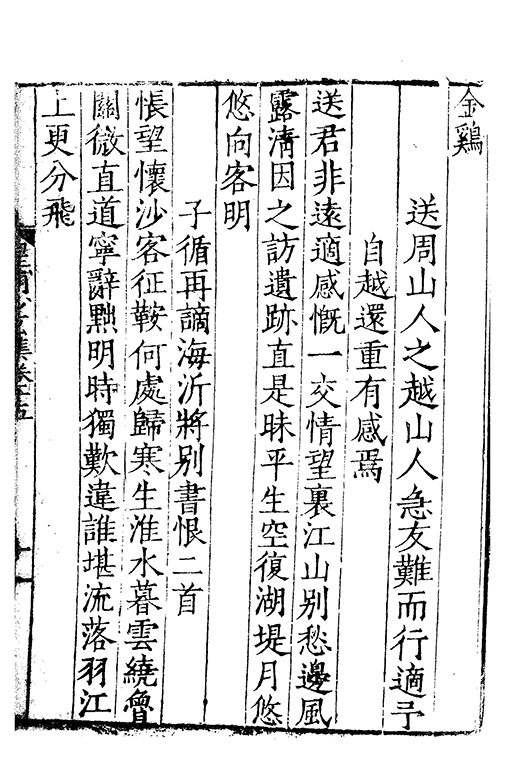 金鷄
送周山人之越山人急友難而行適予
自越還重有感焉
送君非遠適感慨一交情望裏江山别愁邊風
露清因之訪遺跡直是昧平生空復湖堤月悠
悠向客明
子循再謫海沂將别書恨二首
悵望懷沙客征鞍何處歸寒生淮水暮雲繞魯
關微直道寧辭黜明時獨歎違誰堪流落羽江
上更分飛